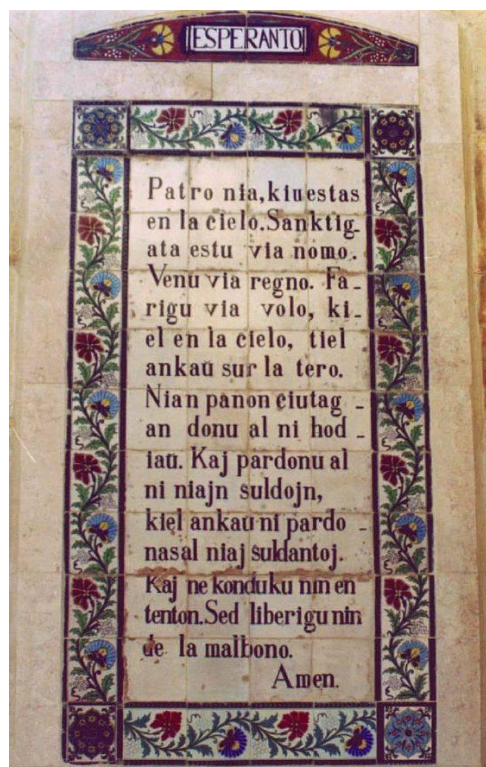 ESPERANTO
Patro nia, kiu estas
en la cielo. Sanktig-
ata estu via nomo.
Venu via regno. Fa-
rigu via volo, ki-
el en la cielo, tiel
ankaŭ sur la tero.
Nian panon ciutag-
an donu al ni hod-
iaŭ. Kaj pardonu al
ni niajn suldojn,
kiel ankaŭ ni pardo-
nas al niaj ŝuldantoj.
Kaj ne konduku nin en
tenton. Sed liberigu nin
de la malbono.
Amen.